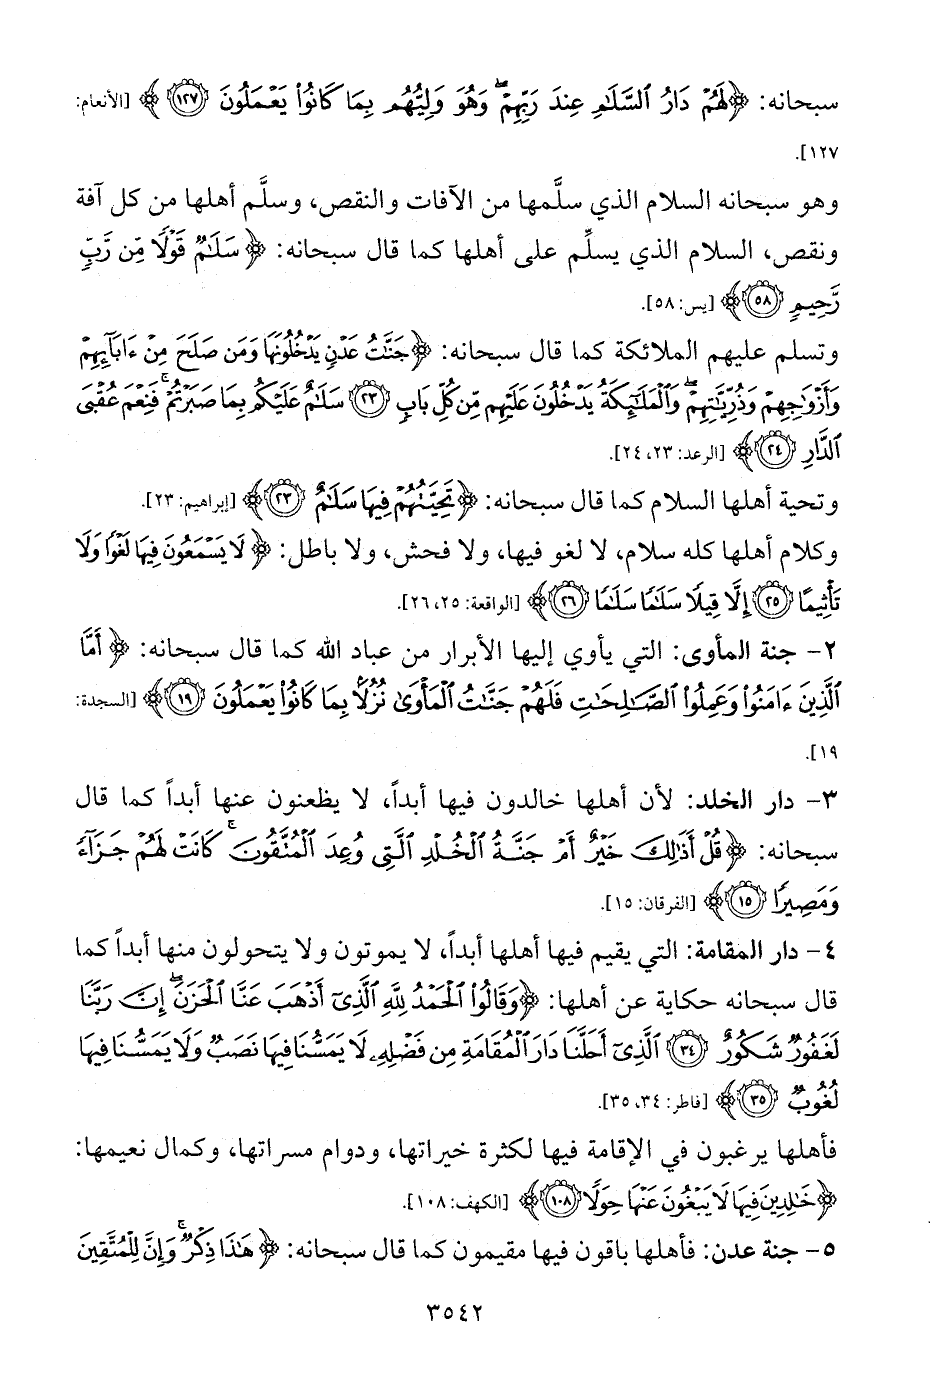 سبحانه: ﴿لَهُمْ دَارُ السَّلَامِ عِندَ رَبِّهِمْ ۖ وَهُوَ وَلِيُّهُم بِمَا كَانُوا يَعْمَلُونَ ١٢٧﴾ [الأنعام:
١٢٧].
وهو سبحانه السلام الذي سلَّمها من الآفات والنقص، وسلَّم أهلها من كل آفة
ونقص، السلام الذي يسلِّم على أهلها كما قال سبحانه: ﴿سَلَامٌ قَوْلًا مِّن رَّبٍّ
رَّحِيمٍ ٥٨﴾ [يس: ٥٨].
وتسلم عليهم الملائكة كما قال سبحانه: ﴿جَنَّاتُ عَدْنٍ يَدْخُلُونَهَا وَمَن صَلَحَ مِنْ آبَائِهِمْ
وَأَزْوَاجِهِمْ وَذُرِّيَّاتِهِمْ ۖ وَالْمَلَائِكَةُ يَدْخُلُونَ عَلَيْهِم مِّن كُلِّ بَابٍ ٢٣ سَلَامٌ عَلَيْكُم بِمَا صَبَرْتُمْ ۚ فَنِعْمَ عُقْبَى
الدَّارِ ٢٤﴾ [الرعد: ٢٣، ٢٤].
وتحية أهلها السلام كما قال سبحانه: ﴿تَحِيَّتُهُمْ فِيهَا سَلَامٌ ٢٣﴾ [إبراهيم: ٢٣].
وكلام أهلها كله سلام، لا لغو فيها، ولا فحش، ولا باطل: ﴿لَا يَسْمَعُونَ فِيهَا لَغْوًا وَلَا
تَأْثِيمًا ٢٥ إِلَّا قِيلًا سَلَامًا سَلَامًا ٢٦﴾ [الواقعة: ٢٥، ٢٦].
٢- جنة المأوى: التي يأوي إليها الأبرار من عباد الله كما قال سبحانه: ﴿أَمَّا
الَّذِينَ آمَنُوا وَعَمِلُوا الصَّالِحَاتِ فَلَهُمْ جَنَّاتُ الْمَأْوَىٰ نُزُلًا بِمَا كَانُوا يَعْمَلُونَ ١٩﴾ [السجدة:
١٩].
٣- دار الخلد: لأن أهلها خالدون فيها أبداً، لا يظعنون عنها أبداً كما قال
سبحانه: ﴿قُلْ أَذَٰلِكَ خَيْرٌ أَمْ جَنَّةُ الْخُلْدِ الَّتِي وُعِدَ الْمُتَّقُونَ ۚ كَانَتْ لَهُمْ جَزَاءً
وَمَصِيرًا ١٥﴾ [الفرقان: ١٥].
٤- دار المقامة: التي يقيم فيها أهلها أبداً، لا يموتون ولا يتحولون منها أبداً كما
قال سبحانه حكاية عن أهلها: ﴿وَقَالُوا الْحَمْدُ لِلَّهِ الَّذِي أَذْهَبَ عَنَّا الْحَزَنَ ۖ إِنَّ رَبَّنَا
لَغَفُورٌ شَكُورٌ ٣٤ الَّذِي أَحَلَّنَا دَارَ الْمُقَامَةِ مِن فَضْلِهِ لَا يَمَسُّنَا فِيهَا نَصَبٌ وَلَا يَمَسُّنَا فِيهَا
لُغُوبٌ ٣٥﴾ [فاطر: ٣٤، ٣٥].
فأهلها يرغبون في الإقامة فيها لكثرة خيراتها، ودوام مسراتها، وكمال نعيمها:
﴿خَالِدِينَ فِيهَا لَا يَبْغُونَ عَنْهَا حِوَلًا ١٠٨﴾ [الكهف: ١٠٨].
٥- جنة عدن: فأهلها باقون فيها مقيمون كما قال سبحانه: ﴿هَٰذَا ذِكْرٌ ۚ وَإِنَّ لِلْمُتَّقِينَ
٣٥٤٢